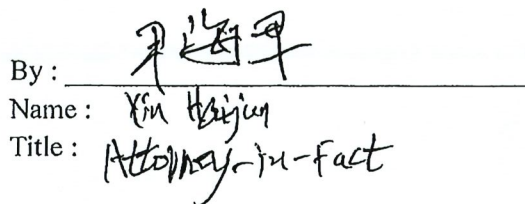 By : 尹海军
Name : Yin Haijun
Title : Attorney-in-Fact